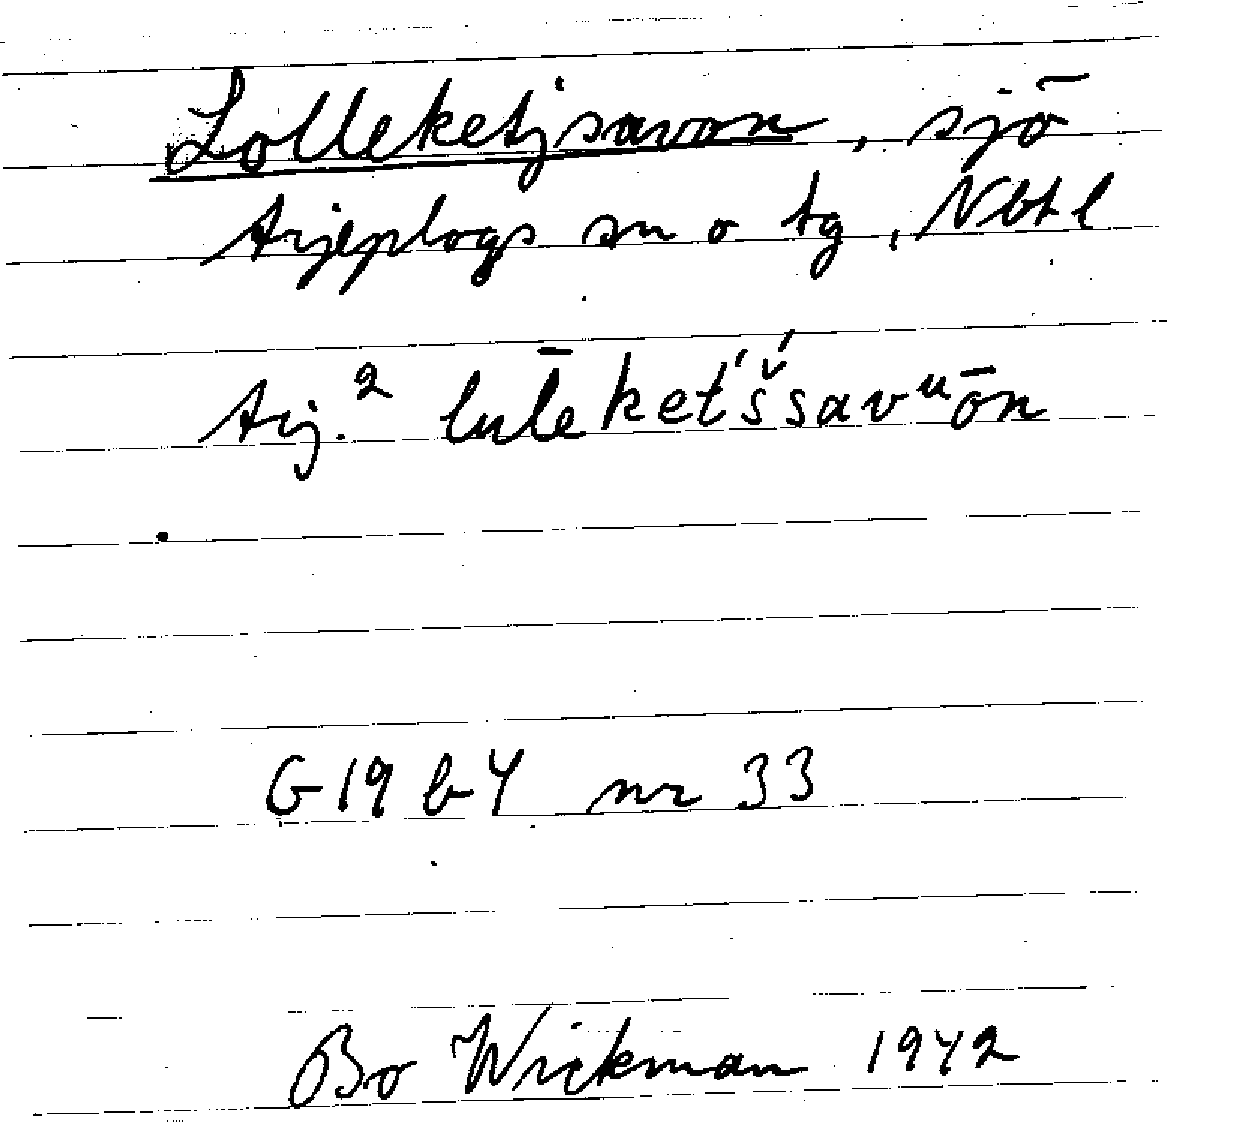 Lolleketjsavon, sjö
Arjeplogs sn o tg, Nbtl
Arj.² lul̄eket́š́savᵘōn
G19b4 nr 33
Bo Wickman 1942